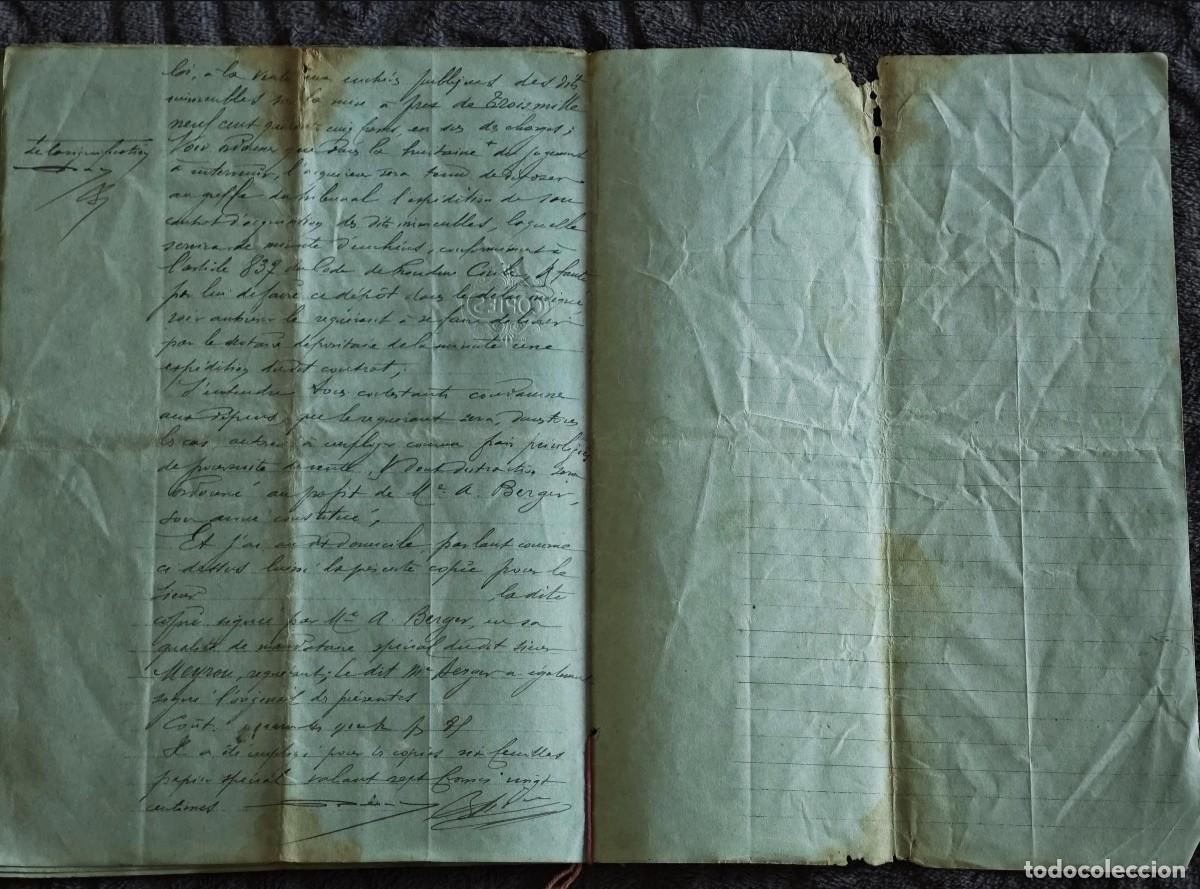 loi, à la vente aux enchères publiques des dits
immeubles sur la mise à prix de Trois mille
neuf cent quarante cinq francs, en sus des charges;
Voir ordonner que dans la huitaine + du jugement
à intervenir, l'acquéreur sera tenu de déposer
au greffe du tribunal l'expédition de son
contrat d'acquisition des dits immeubles, laquelle
servira de minute d'enchères, conformément à
l'article 837 du Code de Procédure Civile, & faute
par lui de faire ce dépôt dans le délai
voir autoriser le requérant à se faire délivrer
par le notaire dépositaire de la minute une
expédition dudit contrat;
S'entendre tous contestants condamner
aux dépens, que le requérant sera, dans tous
les cas, autorisé à employer comme frais privilégiés
de poursuite de vente, & dont distraction sera
ordonné au profit de Me A. Berger,
son avoué constitué,
Et j'ai au dit domicile, parlant comme
ci dessus laissé la présente copie pour le
sieur la dite
copie signée par Me A. Berger, en sa
qualité de mandataire spécial dudit sieur
Meyrou, requérant; le dit Me Berger a également
signé l'original des présentes
Coût
Il a été employé pour les copies six feuilles
papier spécial valant sept francs vingt
centimes
de la signification
COPIES
todocoleccion